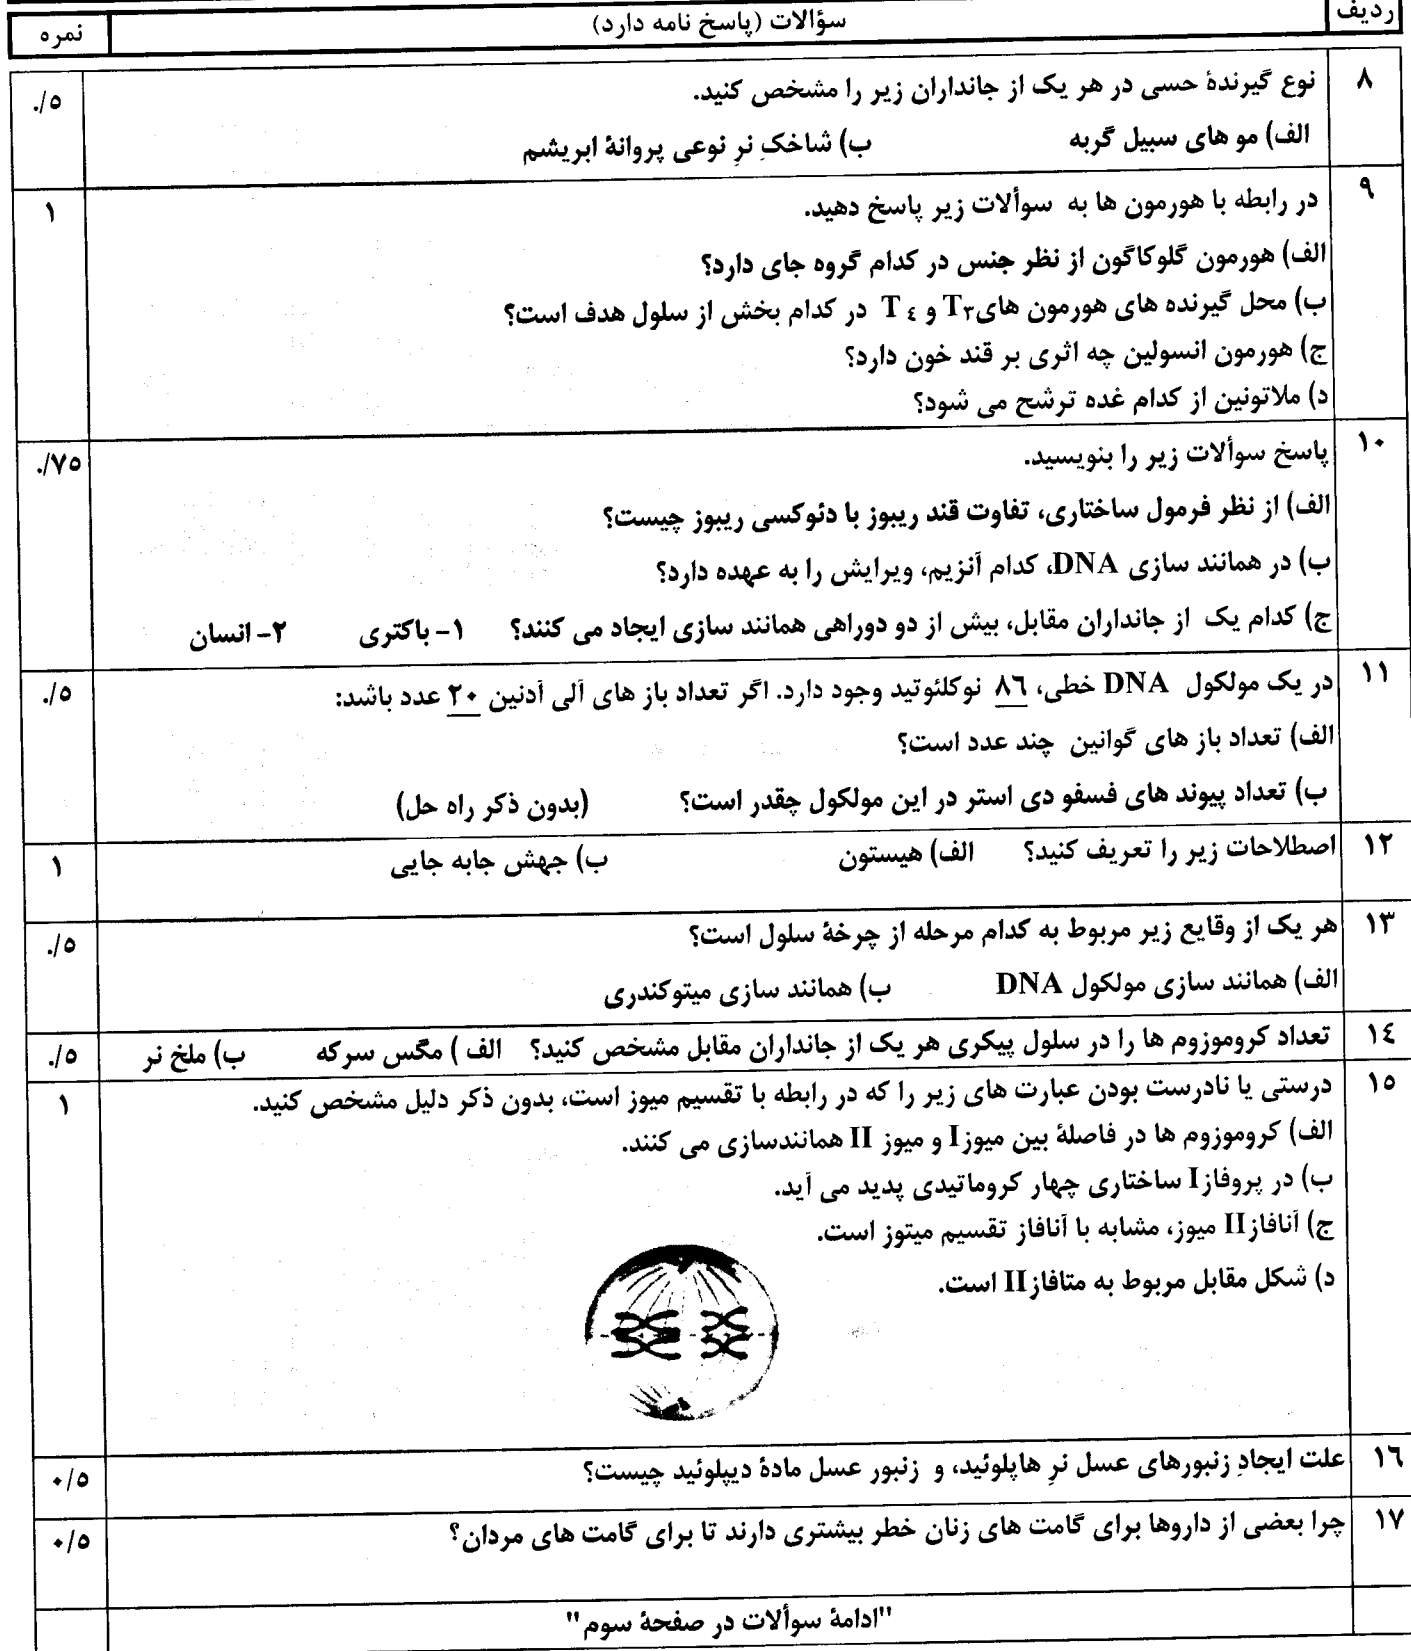 ردیف سؤالات (پاسخ نامه دارد) نمره
۸ نوع گیرندهٔ حسی در هر یک از جانداران زیر را مشخص کنید. ۰/۵
الف) مو های سبیل گربه ب) شاخکِ نرِ نوعی پروانهٔ ابریشم
۹ در رابطه با هورمون ها به سوألات زیر پاسخ دهید. ۱
الف) هورمون گلوکاگون از نظر جنس در کدام گروه جای دارد؟
ب) محل گیرنده های هورمون های T۳ و T٤ در کدام بخش از سلول هدف است؟
ج) هورمون انسولین چه اثری بر قند خون دارد؟
د) ملاتونین از کدام غده ترشح می شود؟
۱۰ پاسخ سوألات زیر را بنویسید. ۰/۷۵
الف) از نظر فرمول ساختاری، تفاوت قند ریبوز با دئوکسی ریبوز چیست؟
ب) در همانند سازی DNA، کدام آنزیم، ویرایش را به عهده دارد؟
ج) کدام یک از جانداران مقابل، بیش از دو دوراهی همانند سازی ایجاد می کنند؟ ۱- باکتری ۲- انسان
۱۱ در یک مولکول DNA خطی، ۸٦ نوکلئوتید وجود دارد. اگر تعداد باز های آلی آدنین ۲۰ عدد باشد: ۰/۵
الف) تعداد باز های گوانین چند عدد است؟
ب) تعداد پیوند های فسفو دی استر در این مولکول چقدر است؟ (بدون ذکر راه حل)
۱۲ اصطلاحات زیر را تعریف کنید؟ الف) هیستون ب) جهش جابه جایی ۱
۱۳ هر یک از وقایع زیر مربوط به کدام مرحله از چرخهٔ سلول است؟ ۰/۵
الف) همانند سازی مولکول DNA ب) همانند سازی میتوکندری
۱٤ تعداد کروموزوم ها را در سلول پیکری هر یک از جانداران مقابل مشخص کنید؟ الف ) مگس سرکه ب) ملخ نر ۰/۵
۱۵ درستی یا نادرست بودن عبارت های زیر را که در رابطه با تقسیم میوز است، بدون ذکر دلیل مشخص کنید. ۱
الف) کروموزوم ها در فاصلهٔ بین میوزI و میوز II همانندسازی می کنند.
ب) در پروفازI ساختاری چهار کروماتیدی پدید می آید.
ج) آنافازII میوز، مشابه با آنافاز تقسیم میتوز است.
د) شکل مقابل مربوط به متافازII است.
۱٦ علت ایجادِ زنبورهای عسل نرِ هاپلوئید، و زنبور عسل مادهٔ دیپلوئید چیست؟ ۰/۵
۱۷ چرا بعضی از داروها برای گامت های زنان خطر بیشتری دارند تا برای گامت های مردان؟ ۰/۵
"ادامهٔ سوألات در صفحهٔ سوم"